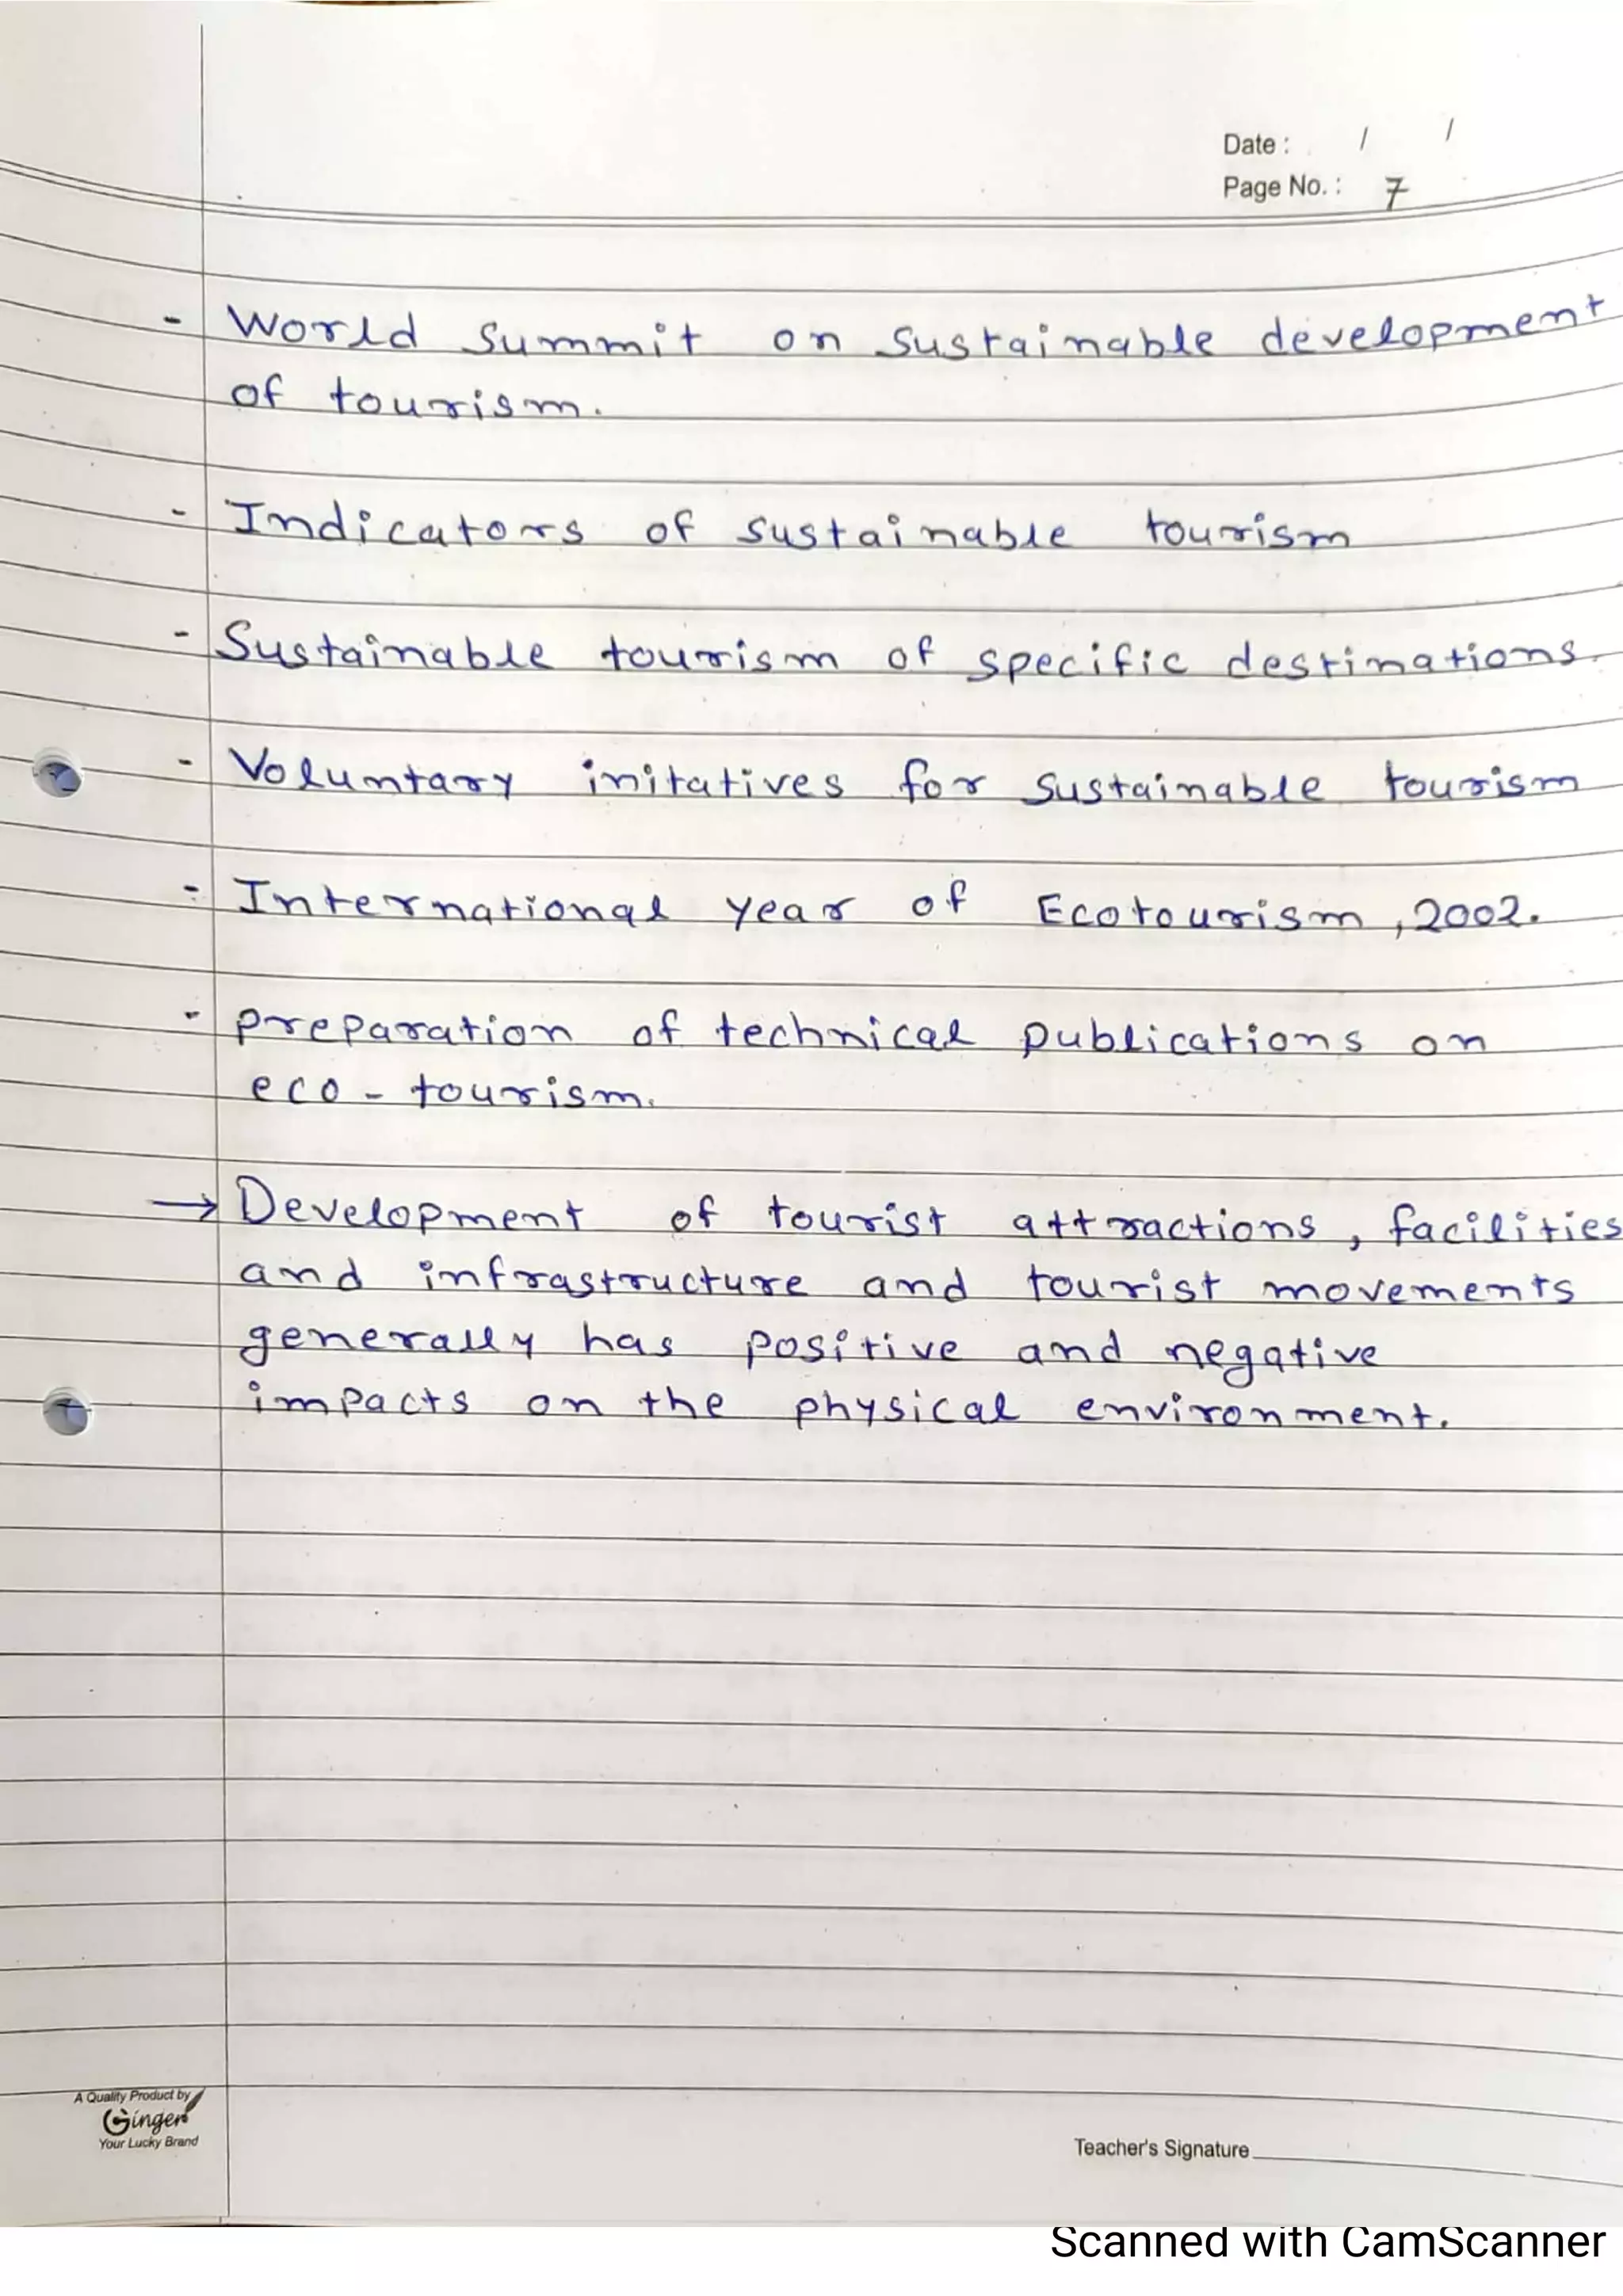 Date : / /
Page No. : 7
- World summit on sustainable development
of tourism.
- Indicators of sustainable tourism
- Sustainable tourism of specific destinations.
- Voluntary initatives for sustainable tourism
- International year of Ecotourism, 2002.
- preparation of technical publications on
eco - tourism.
→ Development of tourist attractions, facilities
and infrastructure and tourist movements
generally has positive and negative
impacts on the physical environment.
A Quality Product by
Ginger
Your Lucky Brand
Teacher's Signature
Scanned with CamScanner